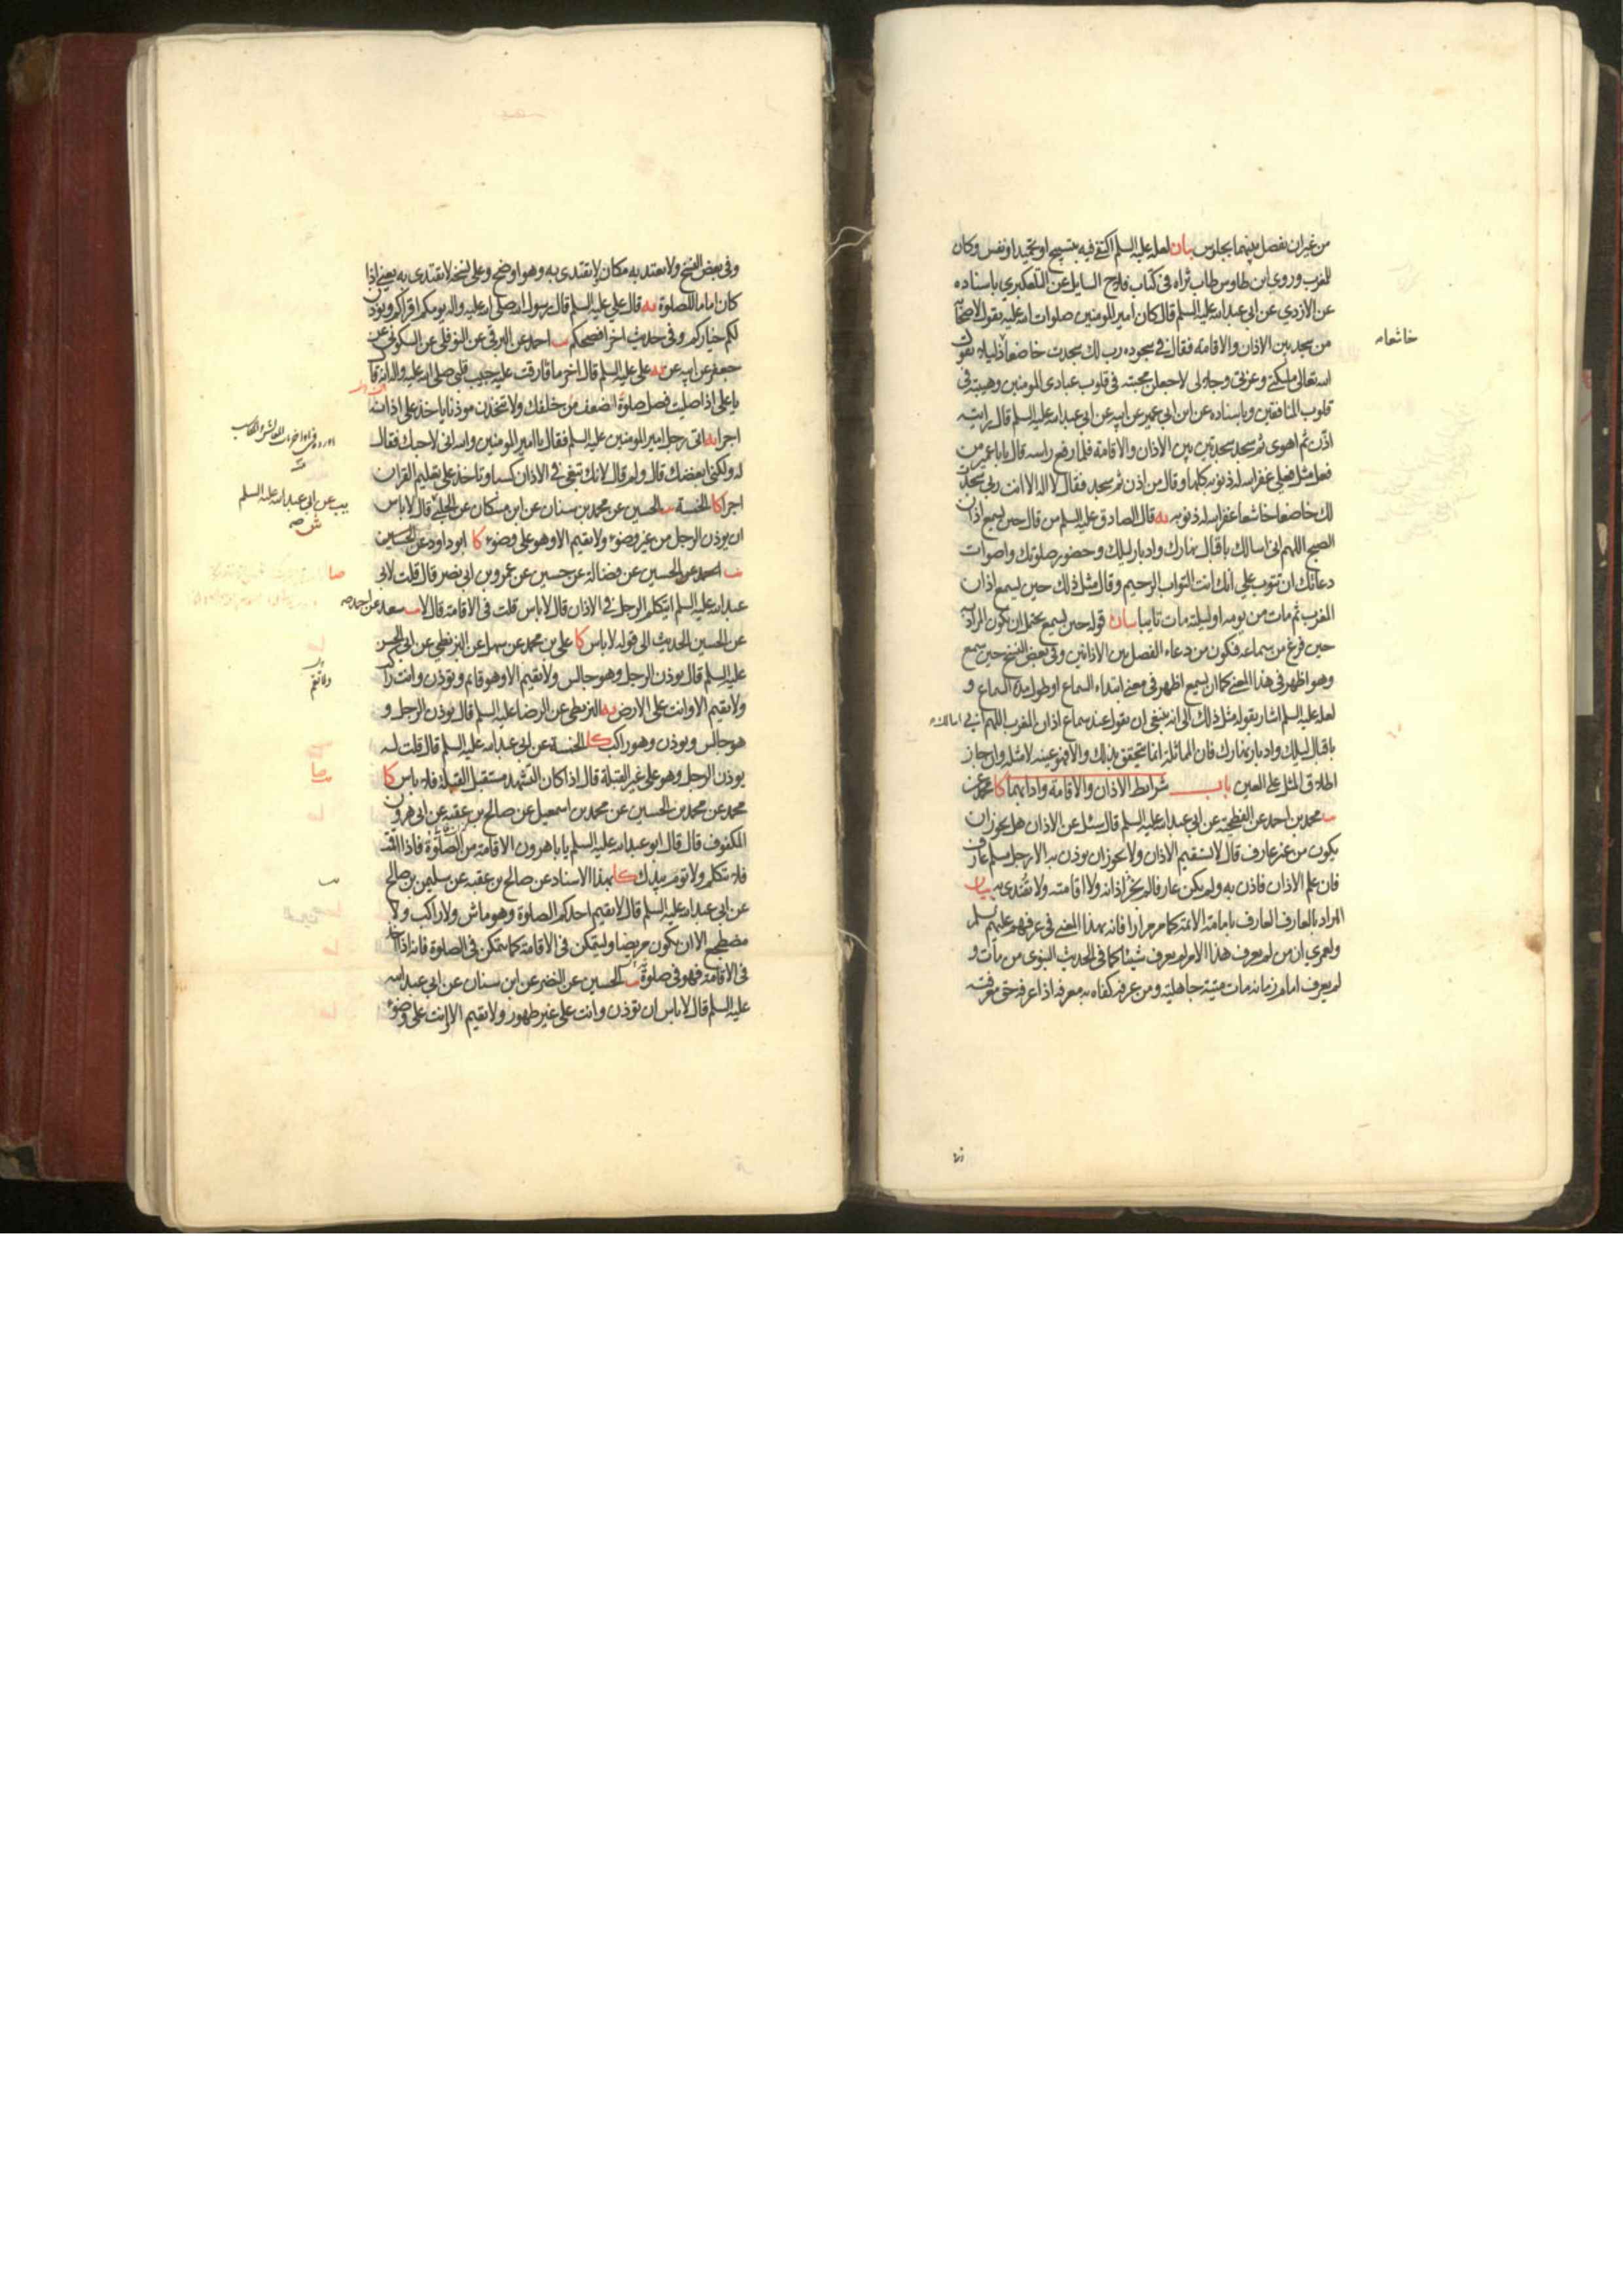 من غير ان يفصل بينهما بجلوس بيان لعله عليه السلم اكتفى فيه بتسبيح او تحميد او نفس وكان
للمغرب وروى ابن طاوس طاب ثراه فى كتاب فلاح السايل عن التلعكبري باسناده
عن الازدي عن ابي عبد الله عليه السلم قال كان امير المومنين صلوات الله عليه يقول لاصحابه
من سجد بين الاذان والاقامة فقال فى سجوده رب لك سجدت خاضعا ذليلا يقول
خاشعا
الله تعالى ملئكتى وعزتى وجلالى لاجعلن محبته فى قلوب عبادى المومنين وهيبته فى
قلوب المنافقين وباسناده عن ابن ابي عمير عن ابيه عن ابي عبد الله عليه السلم قال رايته
اذن ثم اهوى ثم سجد سجدتين بين الاذان والاقامة فلما رفع راسه قال يا با عمير من
فعل مثل فعلي غفر الله له ذنوبه كلها وقال من اذن ثم سجد فقال لا اله الا انت ربى سجدت
لك خاضعا خاشعا غفر الله له ذنوبه يه قال الصادق عليه السلم من قال حين يسمع اذان
الصبح اللهم انى اسالك باقبال نهارك وادبار ليلك وحضور صلوتك واصوات
دعائك ان تتوب علي انك انت التواب الرحيم وقال مثل ذلك حين يسمع اذان
المغرب ثم مات من يومه او ليلته مات تايبا بيان قوله حين يسمع يحتمل ان يكون المراد به
حين فرغ من سماعه فيكون من دعاء الفصل بين الاذانين وفى بعض النسخ حين سمع
وهو اظهر فى هذا المعنى كما ان يسمع اظهر فى معنى ابتداء السماع او طول مدة السماع و
لعله عليه السلم اشار بقوله مثل ذلك الى انه ينبغى ان يقول عند سماع اذان المغرب اللهم انى اسالك
باقبال ليلك وادبار نهارك فان المماثلة انما يتحقق بذلك والا فهو عينه لا مثله وان جاز
اطلاق المثل على العين باب شرايط الاذان والاقامة وادابهما كا محمد عن
محمد بن احمد عن الفطحية عن ابي عبد الله عليه السلم قال سئل عن الاذان هل يجوز ان
يكون من غير عارف قال لا يستقيم الاذان ولا يجوز ان يوذن به الا رجل مسلم عارف
فان علم الاذان فاذن به ولم يكن عارفا لم يجز اذانه ولا اقامته ولا يقتدى به بيان
المراد بالعارف العارف بامامة الائمة كما مر مرارا فانه بهذا المعنى فى عرفهم عليهم السلم
ولعمري ان من لم يعرف هذا الامر لم يعرف شيئا كما فى الحديث النبوى من مات و
لم يعرف امام زمانه مات ميتة جاهلية ومن عرفه كفاه به معرفه اذا عرفه حق معرفته
وفى بعض النسخ ولا يعتد به مكان لا يقتدى به وهو اوضح وعلى نسخة لا يقتدى به يعنى اذا
كان اماما للصلوة يه قال علي عليه السلم قال رسول الله صلى الله عليه واله يومكم اقراكم ويوذن
لكم خياركم وفى حديث اخر افصحكم احمد عن البرقى عن النوفلى عن السكونى عن
جعفر عن ابيه عن يه على عليه السلم قال اخر ما فارقت عليه حبيب قلبى صلى الله عليه واله انه قال
يا على اذا صليت فصل صلوة اضعف من خلفك ولا تتخذن موذنا ياخذ على اذانه
اجرا يه اتى رجل امير المومنين عليه السلم فقال يا امير المومنين والله انى لاحبك فقال
له ولكنى ابغضك قال ولم قال لانك تبغى فى الاذان كسبا وتاخذ على تعليم القران
اجرا كا الخمسة الحسين عن محمد بن سنان عن ابن مسكان عن الحلبى قال لا باس
يب عن ابي عبد الله عليه السلم
ان يوذن الرجل من غير وضوء ولا يقيم الا وهو على وضوء كا ابو داود عن الحسين
احمد عن الحسين عن فضالة عن حسين عن عمرو بن ابى نصر قال قلت لابى
صا
عبد الله عليه السلم ايتكلم الرجل فى الاذان قال لا باس قلت فى الاقامة قال لا سعد عن احمد
عن الحسين الحديث الى قوله لا باس كا علي بن محمد عن سهل عن البزنطى عن ابى الحسن
عليه السلم قال يوذن الرجل وهو جالس ولا يقيم الا وهو قايم وتوذن وانت راكب
ولا يقيم الا وانت على الارض يه البزنطى عن الرضا عليه السلم قال يوذن الرجل و
هو جالس ويوذن وهو راكب كا الخمسة عن ابى عبد الله عليه السلم قال قلت له
يوذن الرجل وهو على غير القبلة قال اذا كان التشهد مستقبل القبلة فلا باس كا
محمد عن محمد بن الحسين عن محمد بن اسمعيل عن صالح بن عقبة عن ابى هرون
المكفوف قال قال ابو عبد الله عليه السلم يا با هرون الاقامة من الصلوة فاذا اقمت
فلا تتكلم ولا توم بيدك كا بهذا الاسناد عن صالح بن عقبه عن سليمن بن صالح
عن ابى عبد الله عليه السلم قال لا يقيم احدكم الصلوة وهو ماش ولا راكب ولا
مضطجع الا ان يكون مريضا وليتمكن فى الاقامة كما يتمكن فى الصلوة فانه اذا اخذ
فى الاقامة فهو فى صلوة الحسين عن النضر عن ابن سنان عن ابى عبد الله
عليه السلم قال لا باس ان توذن وانت على غير طهور ولا تقيم الا وانت على وضوء